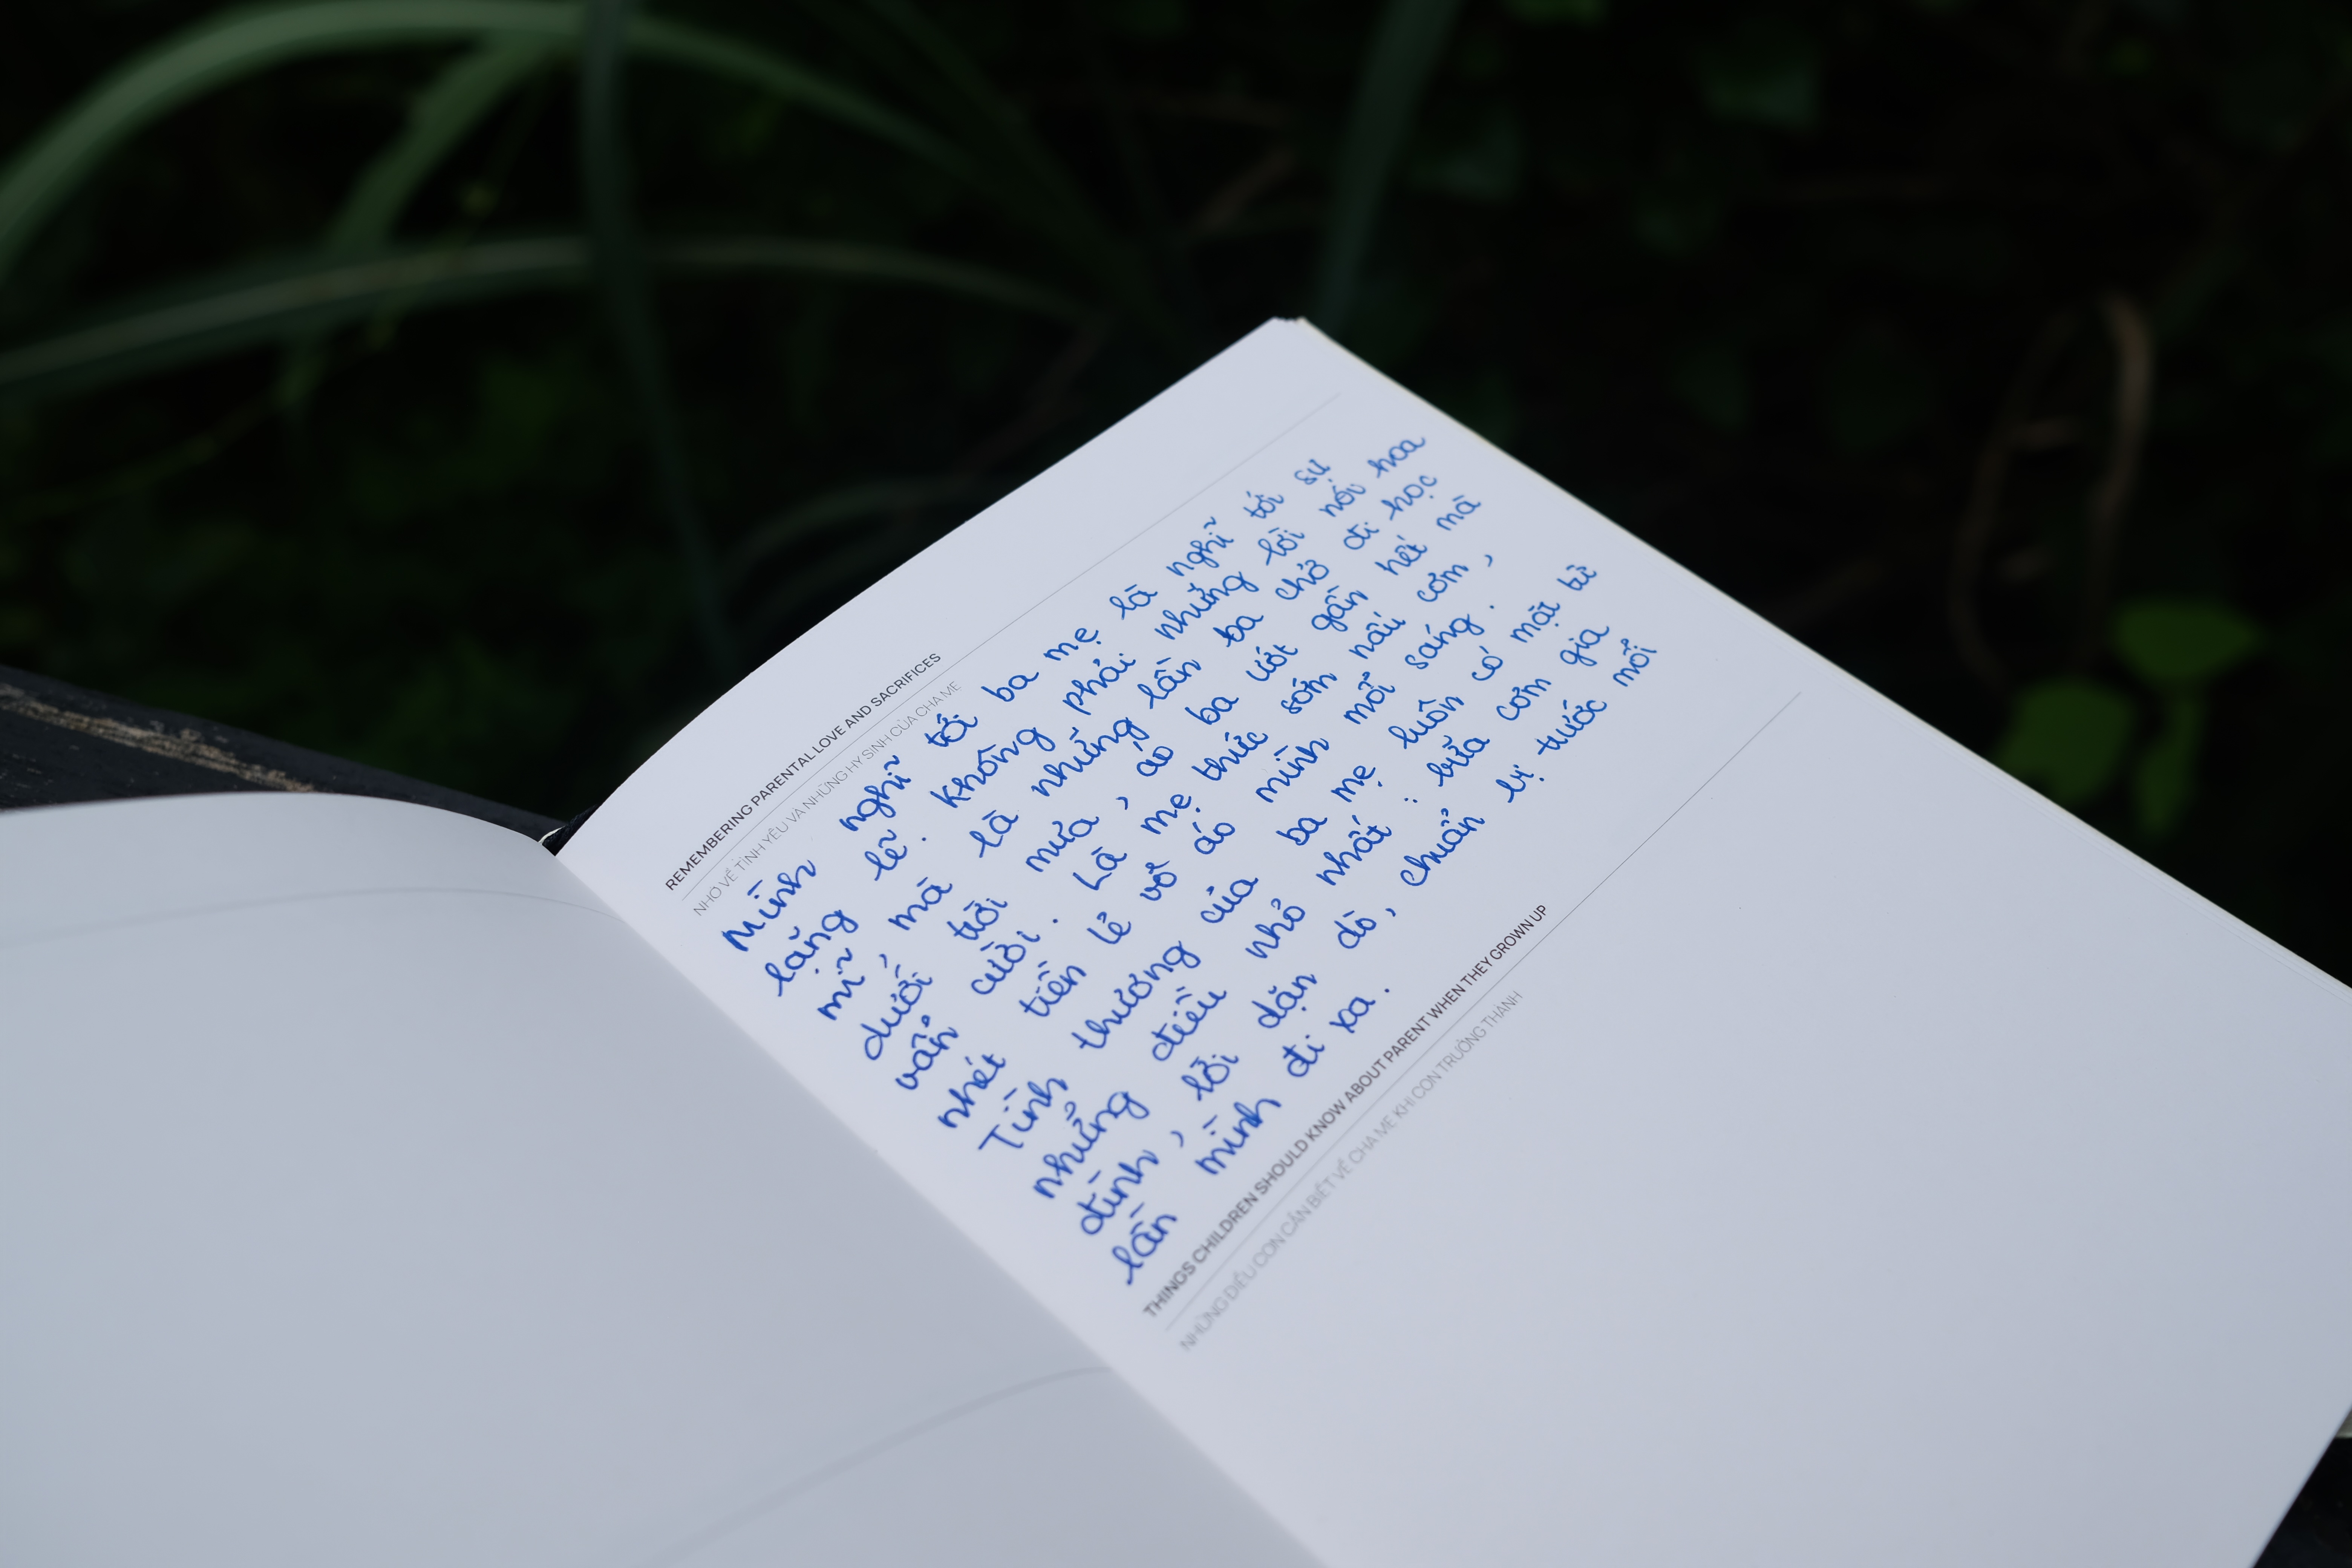 REMEMBERING PARENTAL LOVE AND SACRIFICES
NHỚ VỀ TÌNH YÊU VÀ NHỮNG HY SINH CỦA CHA MẸ
Mình nghĩ tới ba mẹ là nghĩ tới sự
lặng lẽ. Không phải những lời nói hoa
mĩ, mà là những lần ba chở đi học
dưới trời mưa, áo ba ướt gần hết mà
vẫn cười. Là mẹ thức sớm nấu cơm,
nhét tiền lẻ vô áo mình mỗi sáng.
Tình thương của ba mẹ luôn có mặt từ
những điều nhỏ nhất: bữa cơm gia
đình, lời dặn dò, chuẩn bị trước mỗi
lần mình đi xa.
THINGS CHILDREN SHOULD KNOW ABOUT PARENT WHEN THEY GROWN UP
NHỮNG ĐIỀU CON CẦN BIẾT VỀ CHA MẸ KHI CON TRƯỞNG THÀNH